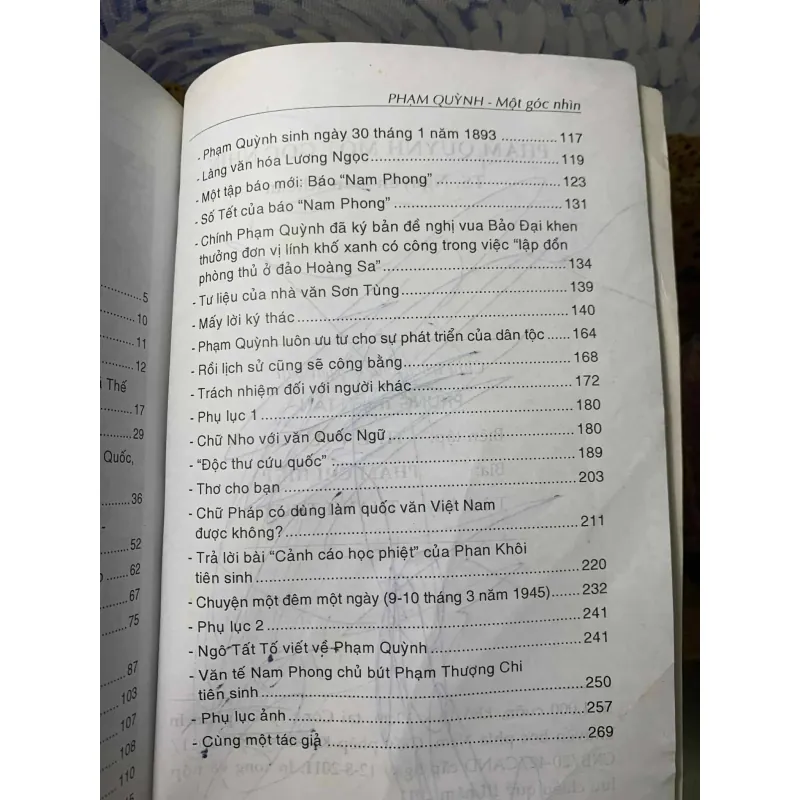 PHẠM QUỲNH - Một góc nhìn
- Phạm Quỳnh sinh ngày 30 tháng 1 năm 1893 .............. 117
- Làng văn hóa Lương Ngọc .............. 119
- Một tập báo mới: Báo “Nam Phong” .............. 123
- Số Tết của báo “Nam Phong” .............. 131
- Chính Phạm Quỳnh đã ký bản đề nghị vua Bảo Đại khen
thưởng đơn vị lính khố xanh có công trong việc “lập đồn
phòng thủ ở đảo Hoàng Sa” .............. 134
- Tư liệu của nhà văn Sơn Tùng .............. 139
- Mấy lời ký thác .............. 140
- Phạm Quỳnh luôn ưu tư cho sự phát triển của dân tộc ...... 164
- Rồi lịch sử cũng sẽ công bằng .............. 168
- Trách nhiệm đối với người khác .............. 172
- Phụ lục 1 .............. 180
- Chữ Nho với văn Quốc Ngữ .............. 180
- “Độc thư cứu quốc” .............. 189
- Thơ cho bạn .............. 203
- Chữ Pháp có dùng làm quốc văn Việt Nam
được không? .............. 211
- Trả lời bài “Cảnh cáo học phiệt” của Phan Khôi
tiên sinh .............. 220
- Chuyện một đêm một ngày (9-10 tháng 3 năm 1945) ....... 232
- Phụ lục 2 .............. 241
- Ngô Tất Tố viết về Phạm Quỳnh .............. 241
- Văn tế Nam Phong chủ bút Phạm Thượng Chi
tiên sinh .............. 250
- Phụ lục ảnh .............. 257
- Cùng một tác giả .............. 269
5
10
11
12
Thế
17
29
Quốc,
36
52
62
67
75
87
103
107
108
110